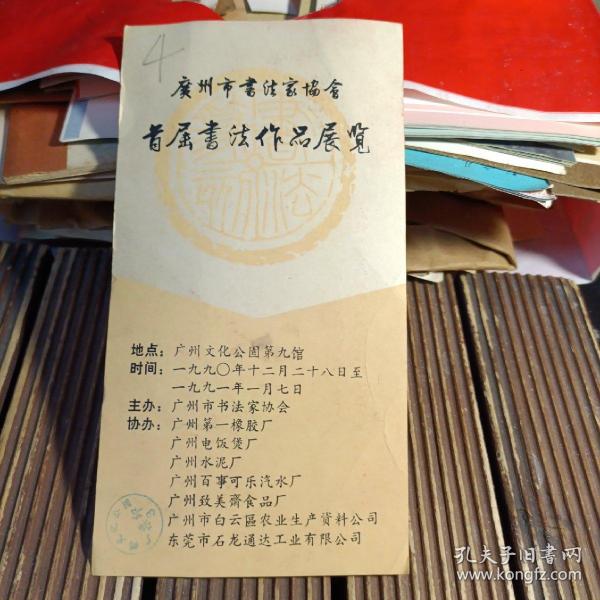 4
廣州市書法家協會
首届書法作品展览
地点：广州文化公园第九馆
时间：一九九〇年十二月二十八日至
一九九一年一月七日
主办：广州市书法家协会
协办：广州第一橡胶厂
广州电饭煲厂
广州水泥厂
广州百事可乐汽水厂
广州致美齋食品厂
广州市白云區农业生产資料公司
东莞市石龙通达工业有限公司
孔夫子旧书网
www.kongfz.com